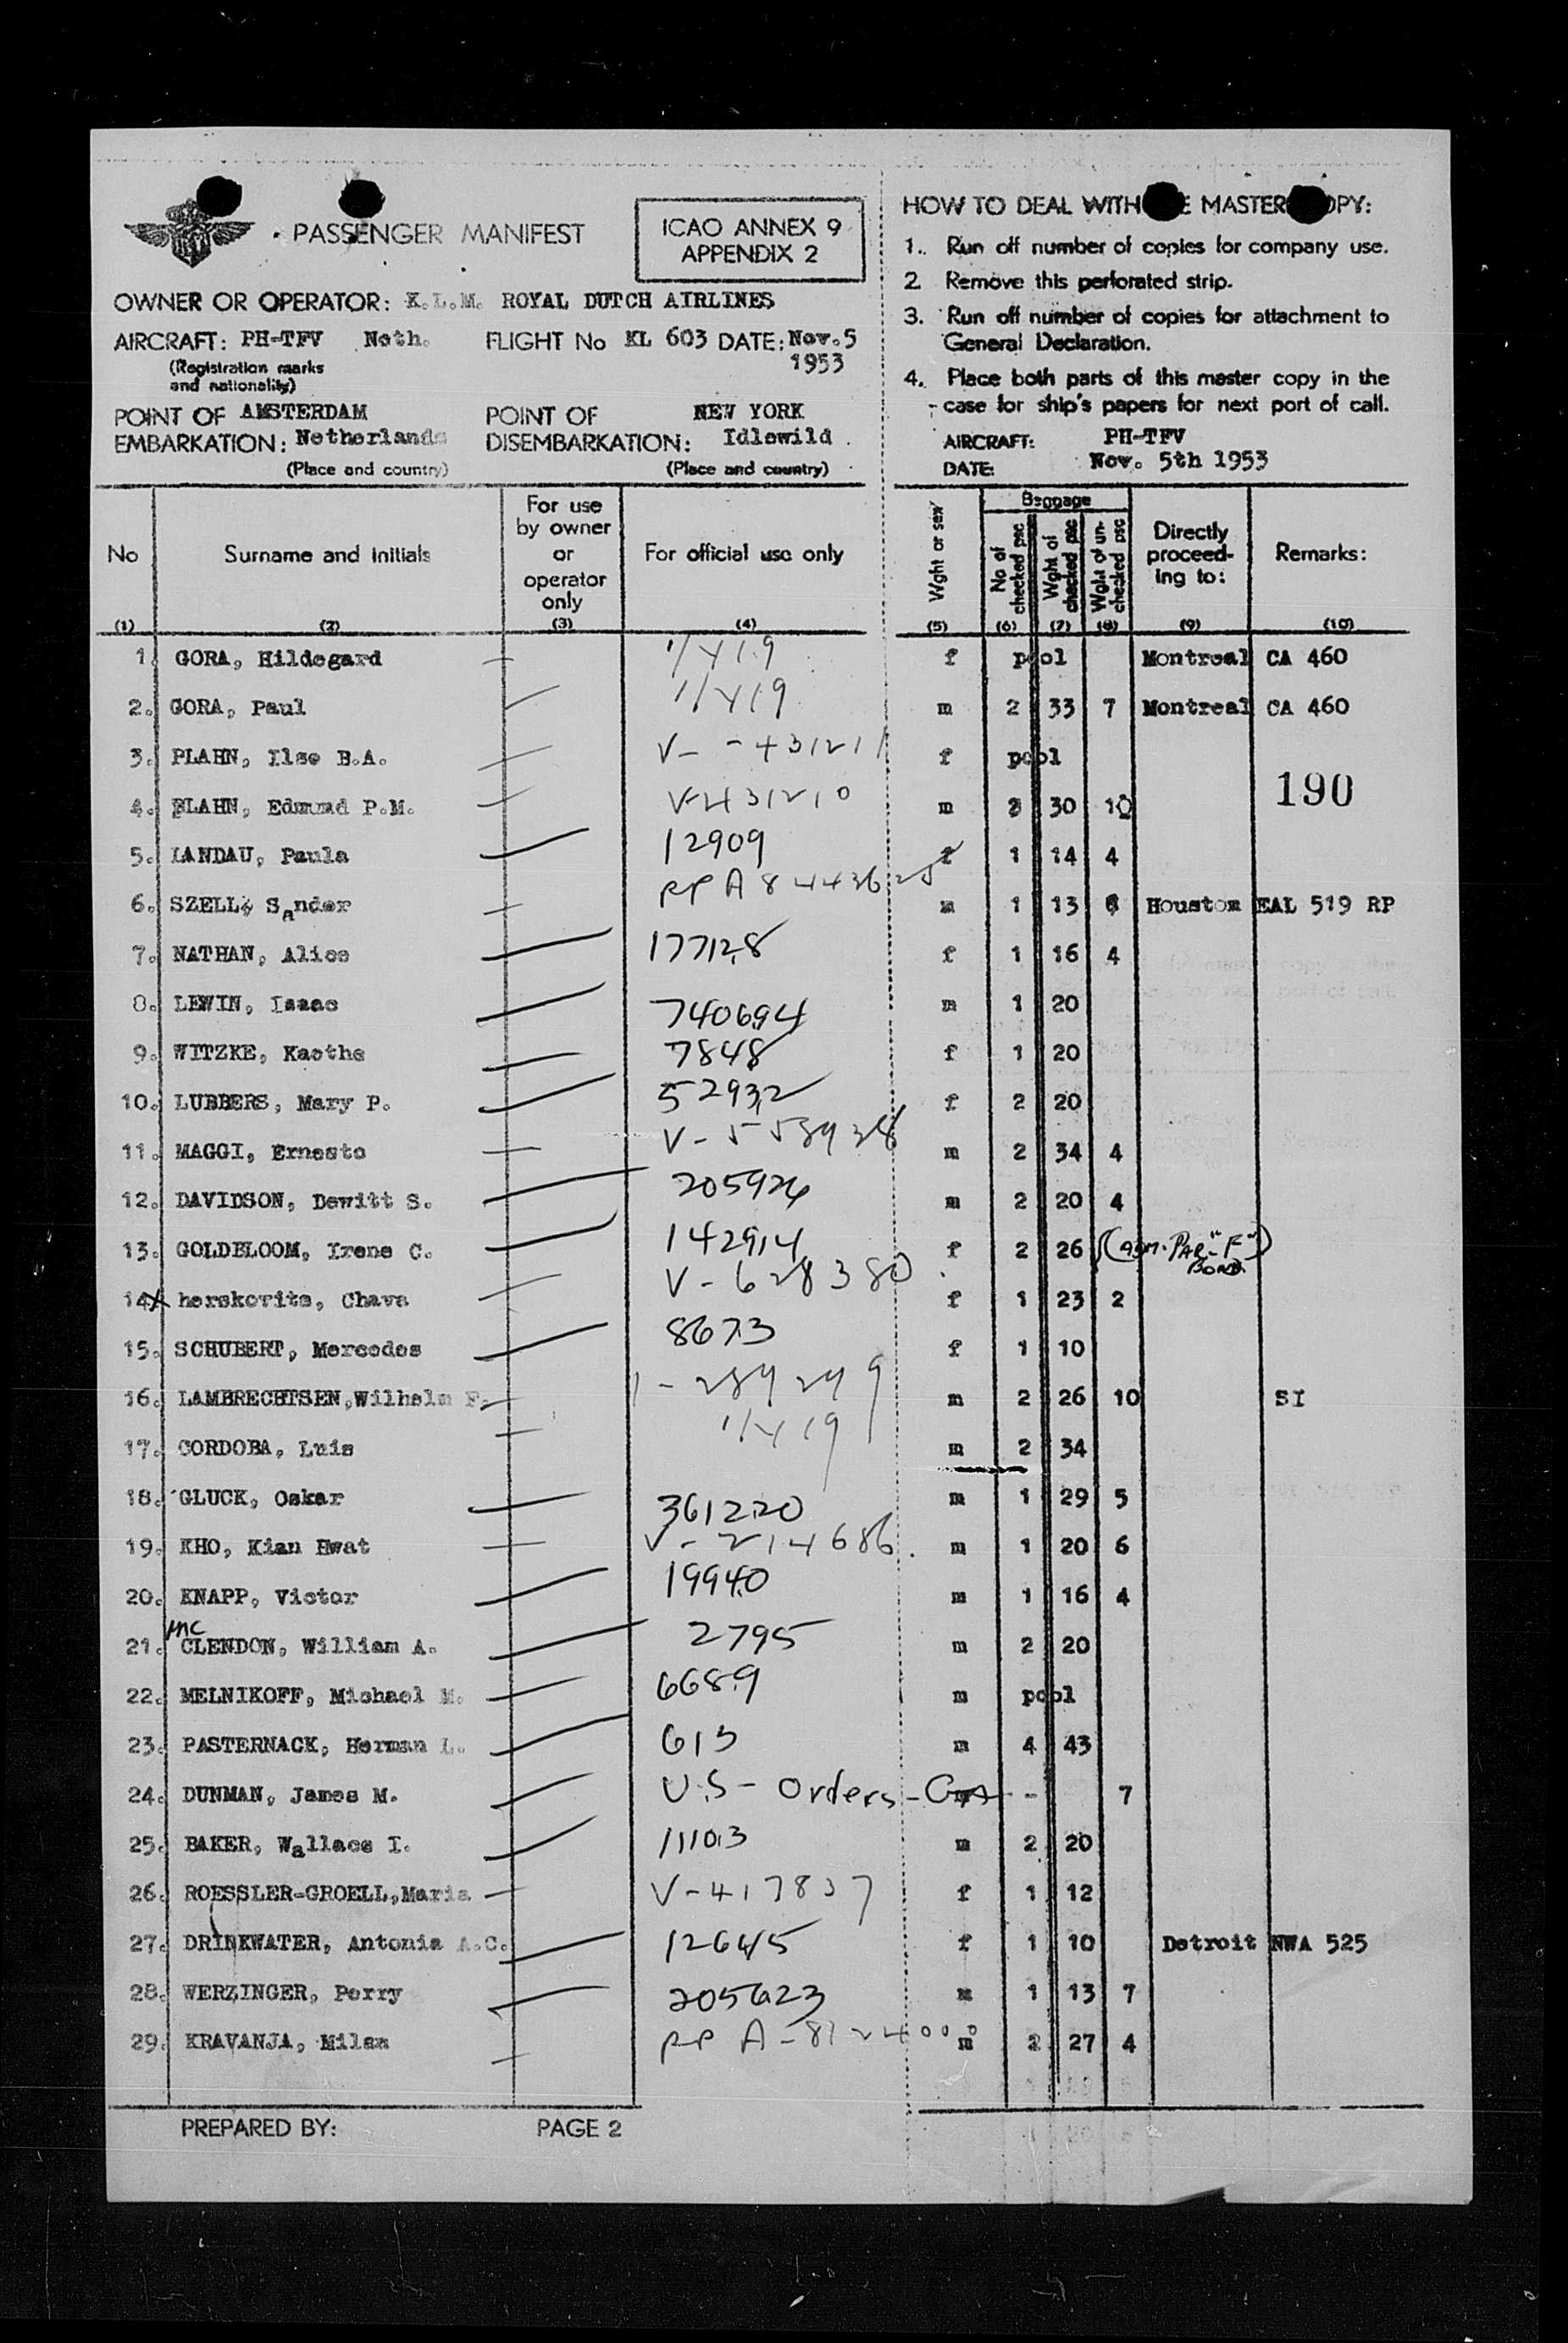 PASSENGER MANIFEST
ICAO ANNEX 9
APPENDIX 2
OWNER OR OPERATOR: K.L.M. ROYAL DUTCH AIRLINES
AIRCRAFT: PH-TFV Neth. FLIGHT No KL 603 DATE: Nov. 5
1953
(Registration marks
and nationality)
POINT OF AMSTERDAM POINT OF NEW YORK
EMBARKATION: Netherlands DISEMBARKATION: Idlewild
(Place and country) (Place and country)
HOW TO DEAL WITH MASTER
1. Run off number of copies for company use.
2. Remove this perforated strip.
3. Run off number of copies for attachment to
General Declaration.
4. Place both parts of this master copy in the
case for ship's papers for next port of call.
AIRCRAFT: PH-TFV
DATE: Nov. 5th 1953
No Surname and Initials For use by owner or operator only For official use only Wght or sex Baggage No of checked psc Wght of checked psc Wght of un-checked psc Directly proceed-ing to: Remarks:
(1) (2) (3) (4) (5) (6) (7) (8) (9) (10)
1. GORA, Hildegard f pool Montreal CA 460
2. GORA, Paul m 2 33 7 Montreal CA 460
3. PLAHN, Ilse B.A. f pool
190
4. PLAHN, Edmund P.M. V-431210 m 30 10
5. LANDAU, Paula 12909 f 1 14 4
6. SZELL, Sandor m 1 13 Houston EAL 519 RP
7. NATHAN, Alice 177128 f 1 16 4
8. LEWIN, Isaac 740694 m 1 20
9. WITZKE, Kaethe 7848 f 1 20
10. LUBBERS, Mary P. 52932 f 2 20
11. MAGGI, Ernesto V-558928 m 2 34 4
12. DAVIDSON, Dewitt S. 205926 m 2 20 4
13. GOLDBLOOM, Irene C. 142914 f 2 26
PAR-"F"
BOND
14. herskovits, Chava V-628380 f 1 23 2
15. SCHUBERT, Mercedes 8673 f 1 10
16. LAMBRECHTSEN, Wilhelm F. m 2 26 10 SI
17. CORDOBA, Luis m 2 34
18. GLUCK, Oskar 361220 m 1 29 5
19. KHO, Kian Hwat V-214686 m 1 20 6
20. KNAPP, Victor 19940 m 1 16 4
21. Mc CLENDON, William A. 2795 m 2 20
22. MELNIKOFF, Michael M. 6689 m pool
23. PASTERNACK, Herman L. 613 m 4 43
24. DUNMAN, James M. U.S - Orders - - 7
25. BAKER, Wallace I. 11103 m 2 20
26. ROESSLER-GROELL, Maria V-417837 f 1 12
27. DRINKWATER, Antonia A.C. 12645 f 1 10 Detroit NWA 525
28. WERZINGER, Perry 205623 m 1 13 7
29. KRAVANJA, Milan m 2 27 4
PREPARED BY: PAGE 2